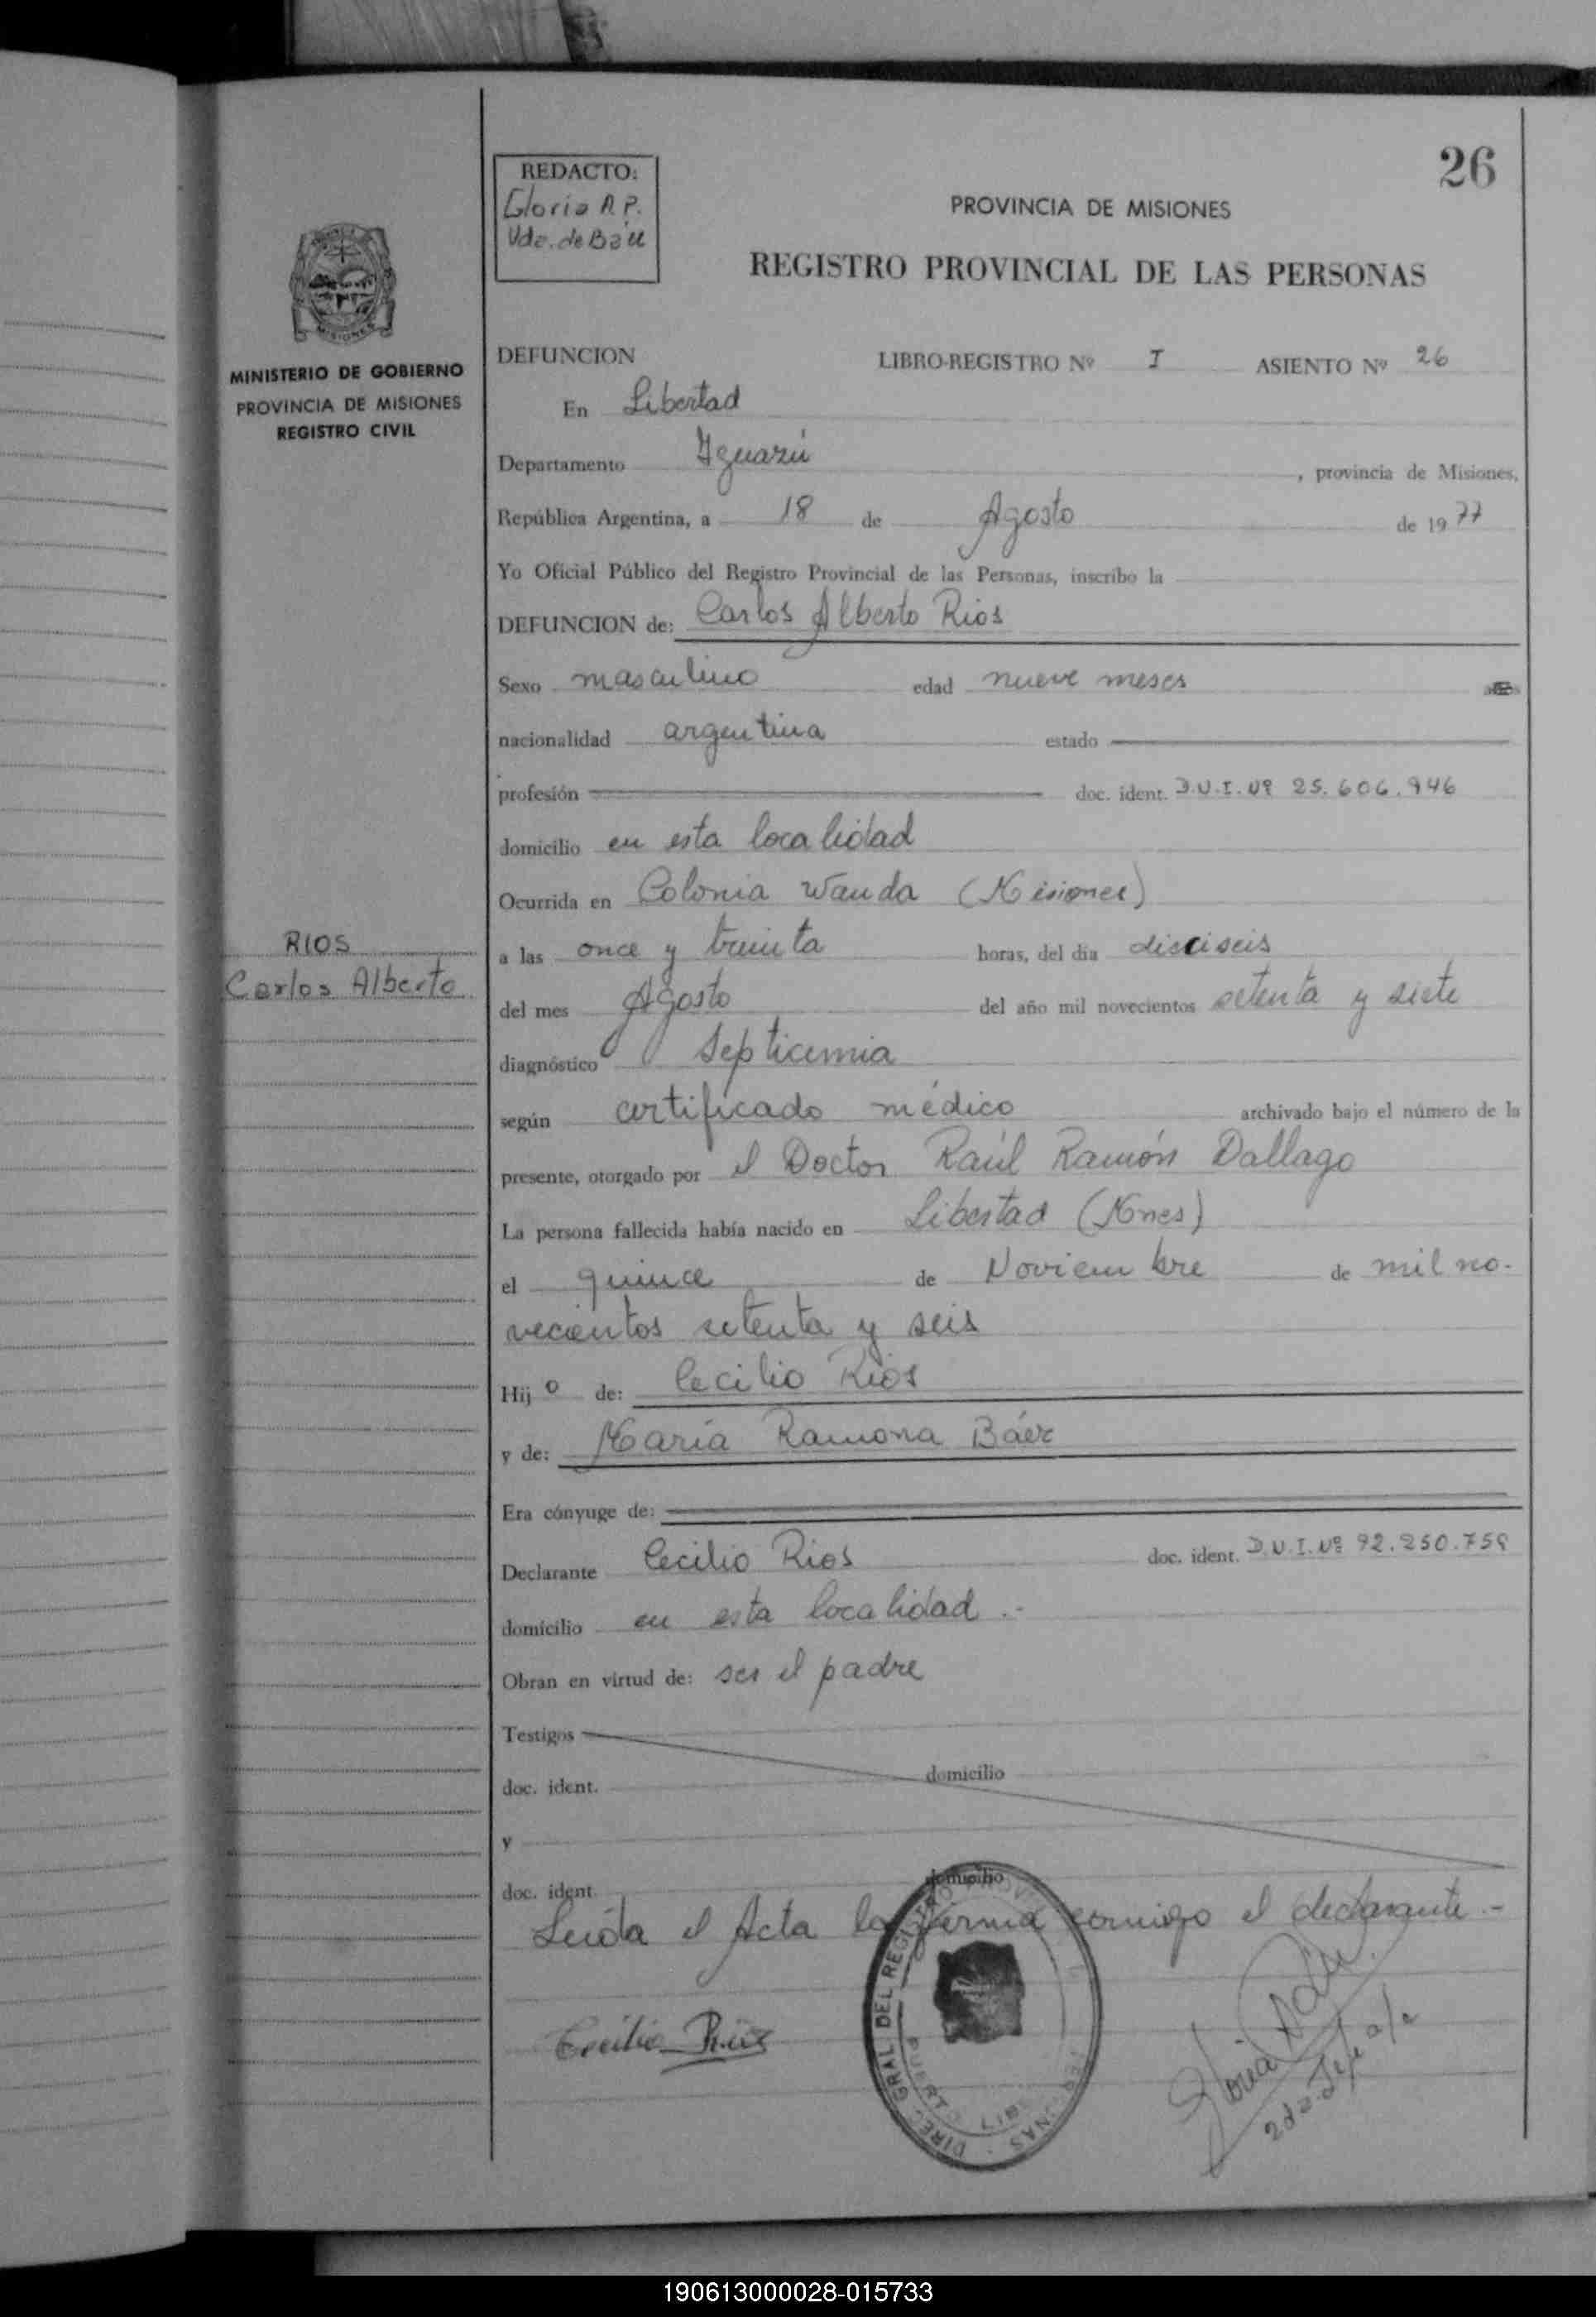 26
REDACTO:
Gloria A. P.
Vda. de Báez
PROVINCIA DE MISIONES
REGISTRO PROVINCIAL DE LAS PERSONAS
MISIONES
MINISTERIO DE GOBIERNO
PROVINCIA DE MISIONES
REGISTRO CIVIL
DEFUNCION LIBRO-REGISTRO Nº I ASIENTO Nº 26
En Libertad
Departamento Iguazú, provincia de Misiones,
República Argentina, a 18 de Agosto de 1977
Yo Oficial Público del Registro Provincial de las Personas, inscribo la
DEFUNCION de: Carlos Alberto Rios
Sexo masculino edad nueve meses
nacionalidad argentina estado
profesión doc. ident. D.N.I. Nº 25.606.946
domicilio en esta localidad
Ocurrida en Colonia Wanda (Misiones)
RIOS
Carlos Alberto
a las once y treinta horas, del día dieciseis
del mes Agosto del año mil novecientos setenta y siete
diagnóstico Septicemia
según certificado médico archivado bajo el número de la
presente, otorgado por el Doctor Raúl Ramón Dallago
La persona fallecida había nacido en Libertad (Mnes)
el quince de Noviembre de mil no-
vecientos setenta y seis
Hijo de: Cecilio Rios
y de: María Ramona Báez
Era cónyuge de:
Declarante Cecilio Rios doc. ident. D.N.I. Nº 92.250.759
domicilio en esta localidad .-
Obran en virtud de: ser el padre
Testigos
doc. ident. domicilio
y
doc. ident. domicilio
Leída el Acta la firma conmigo el declarante.-
Cecilio Rios
DIREC. GRAL. DEL REGISTRO PROV PERSONAS
PUERTO LIB
Gloria
190613000028-015733